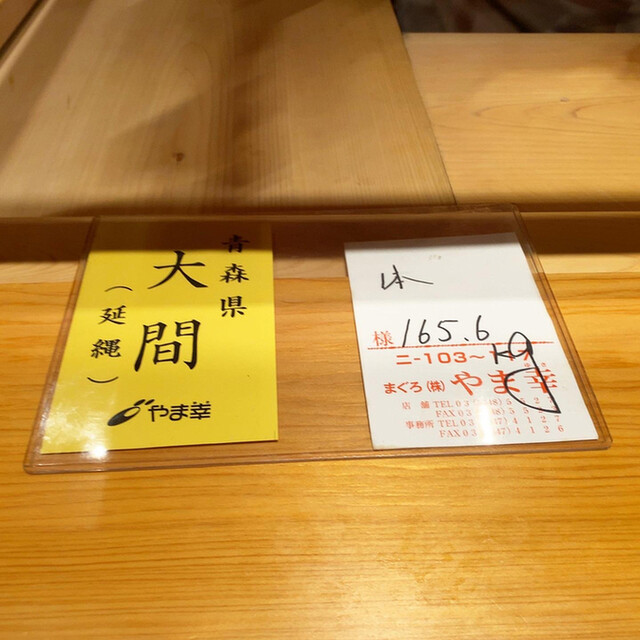 青森県
大間
(延縄)
やま幸
様 165.6 kg
ニ-103~
まぐろ(株) やま幸
店舗 TEL 03
FAX 03
事務所 TEL 03 47) 4127
FAX 03 47) 4126